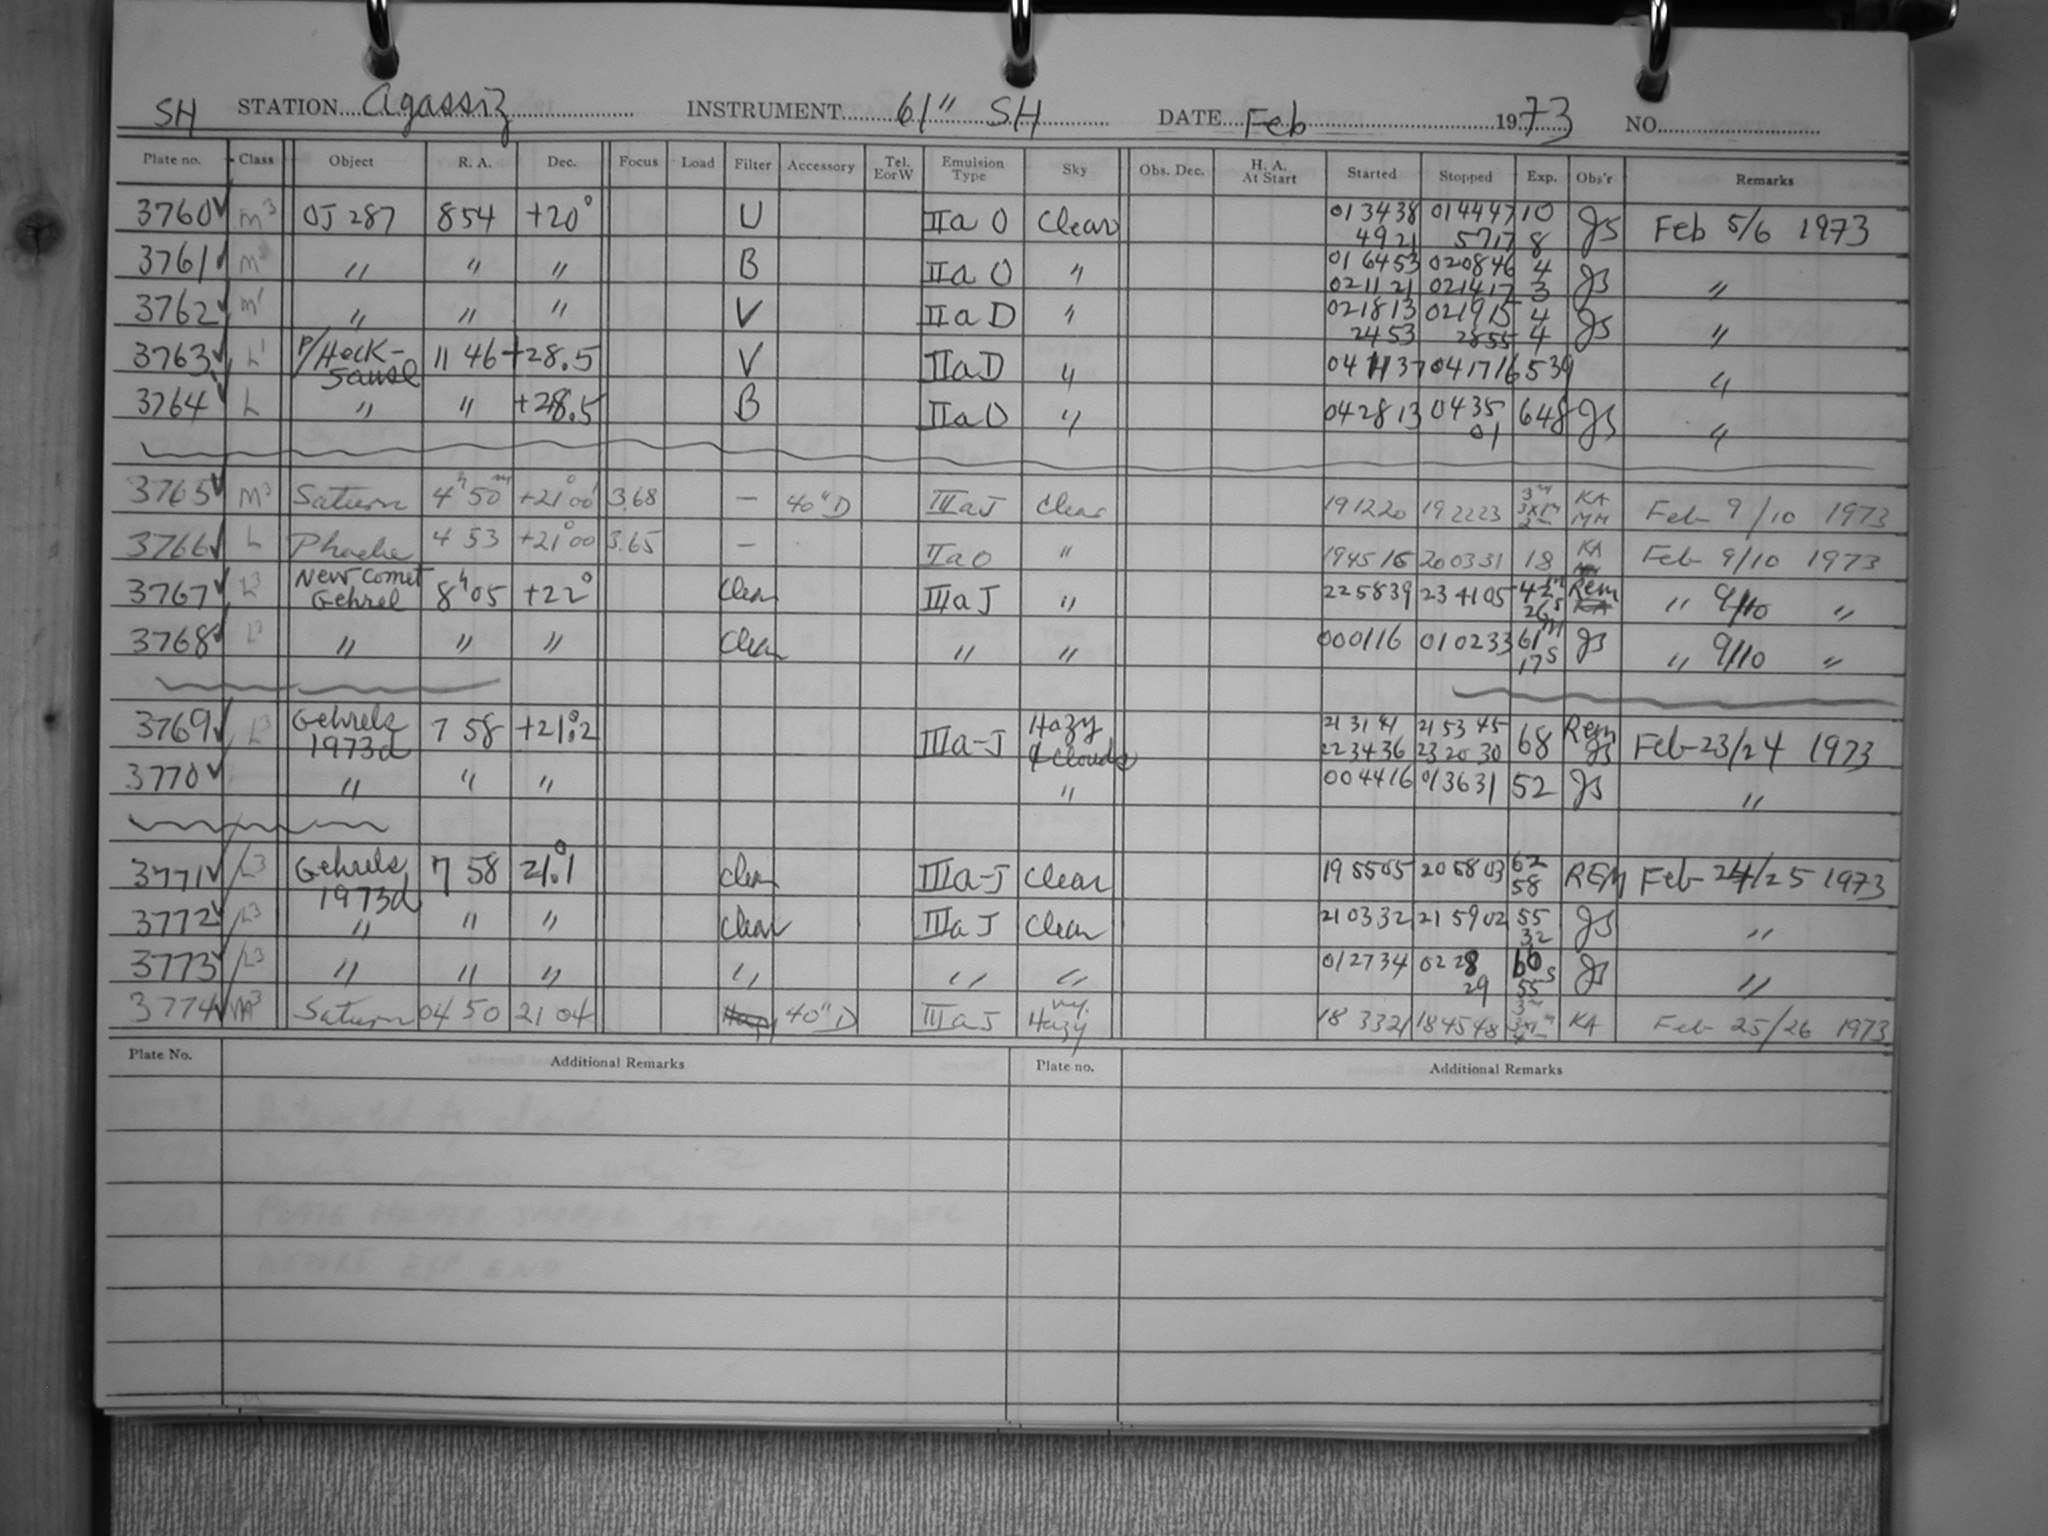 SH STATION Agassiz INSTRUMENT 61" SH DATE Feb 1973 NO.
Plate no. Class Object R. A. Dec. Focus Load Filter Accessory Tel. EorW Emulsion Type Sky Obs. Dec. H. A. At Start Started Stopped Exp. Obs'r Remarks
3760 ✓ m³ OJ 287 8 54 +20° U IIa O Clear 013438 014447 10 JS Feb 5/6 1973
4921 5717 8
3761 ✓ " " " B IIa O " 016453 020846 4 JS "
021121 021417 3
3762 ✓ m' " " " V IIa D " 021813 021915 4 JS "
2453 2855 4
3763 ✓ L' P/Heck- 11 46 +28.5 V IIaD " 041137 041716 539 "
Sause
3764 ✓ L " " +28.5 B IIaO " 042813 0435 648 JS "
01
3765 ✓ M³ Saturn 4ʰ50ᵐ +21°00' 3.68 — 40"D IIIaJ Clear 191220 192223 3ᵐ KA MM Feb 9/10 1973
3766 ✓ L Phoebe 4 53 +21°00 3.65 — IIaO " 194516 200331 18 KA Feb 9/10 1973
3767 ✓ L³ New Comet Gehrel 8ʰ05 +22° Clear IIIaJ " 225839 234105 42ᵐ 26ˢ Rem " 9/10 "
3768 ✓ L³ " " " Clear " " 000116 010233 61ᵐ 17ˢ JS " 9/10 "
3769 ✓ L³ Gehrels 1973a 7 58 +21.°2 IIIa-J Hazy & Clouds 213141 215345 68 Rem JS Feb 23/24 1973
223436 232030
3770 ✓ " " " " 004416 013631 52 JS "
3771 ✓ L3 Gehrels 1973a 7 58 21.°1 clear IIIa-J Clear 195505 205803 62 58 REM Feb 24/25 1973
3772 ✓ L3 " " " Clear IIIa J Clear 210332 215902 55 32 JS "
3773 ✓ L3 " " " " " " 012734 0228 29 60 55ˢ JS "
3774 ✓ M³ Saturn 04 50 21 04 40"D IIIaJ Hazy 183321 184548 KA Feb 25/26 1973
Plate No. Additional Remarks Plate no. Additional Remarks